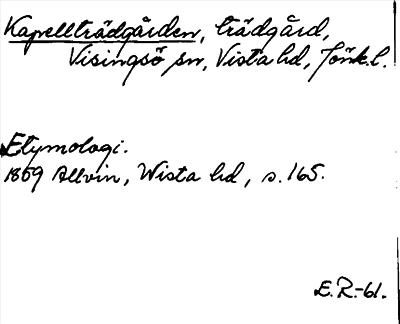 Kapellträdgården, trädgård,
Visingsö sn, Vista hd, Jönk.l.
Etymologi.
1859 Allvin, Wista hd, s.165.
E.R.-61.